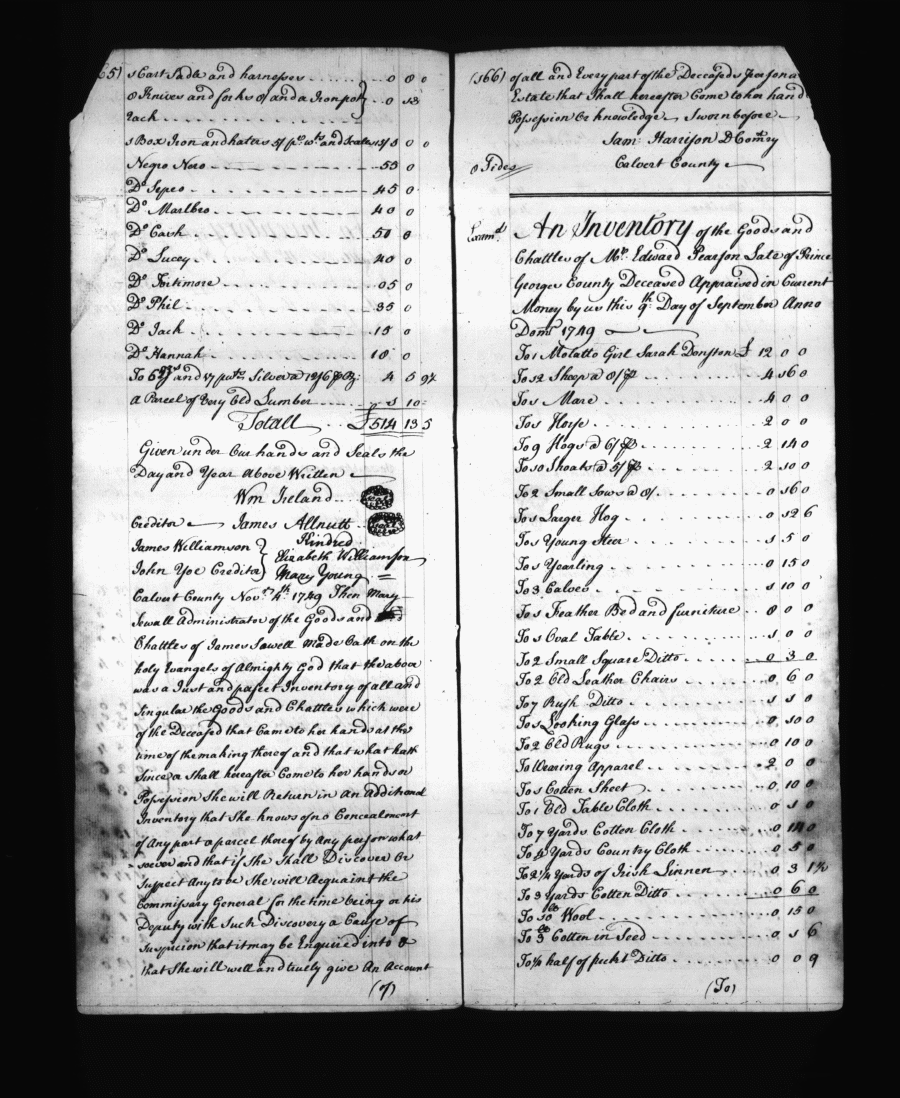 65)
1 Cart Sadle and harnesses . . . . . . . . 0 8 0
8 Knives and forks 8/ and a Iron pot } . . 0 13
rack . . . . . . . . . . . . .
1 Box Iron and haters 5/ pr. wts and Scales 15/ 1 0 0
Negro Nero - - - - - - - 55 0
Do Sepeo - - - - - - - 45 0
Do Marlbro - - - - - - - 40 0
Do Cash - - - - - - - 50 0
Do Lucey - - - - - - - 40 0
Do Fortimore . . . . . . . 05 0
Do Phil - - - - - - - 35 0
Do Jack - - - - - - - 15 0
Do Hannah - - - - - - - 18 0
To 5 ozs and 17 pwts Silver a 14/6 P oz: 4 5 9¾
a Parcel of Very Old Lumber . . . . . . . 1 10
Totall . . £514 13 5
Given under Our hands and Seals the
Day and Year Above Written
Wm Ireland . . seal
Creditor James Allnutt . . seal
Kindred
James Williamson } Elizabeth Williamson
John Yoe Creditor } Mary Young =
Calvert County Novr 4th 1749 Then Mary
Sewall Administrator of the Goods and
Chattles of James Sowell Made Oath on the
holy Evangels of Almighty God that the above
was a Just and pafect Inventory of all and
Singular the Goods and Chattles which were
of the Deceased that Came to her hand at the
time of the making thereof and that what hath
Since or Shall hereafter Come to her hands or
Possession She will Return in An Additional
Inventory that She knows of no Concealment
of Any part or parcel thereof by Any person what
soever and that if She Shall Discover Or
Suspect Any to be She will Acquaint the
Commissary General for the time being or his
Deputy with Such Discovery or Cause of
Suspicion that it may be Enquired into &
that She will well and truely give An Account
(of)
(166) of all and Every part of the Deceaseds Persona
Estate that Shall hereafter Come to her hand
Possession Or knowledge Sworn before
Sam: Harrison D Comry
Calvert County
8 Sides
Examd. An Inventory of the Goods and
Chattles of Mr. Edward Pearson Late of Prince
Georges County Deceased Appraised in Current
Money by us this 9th Day of September Anno
Domi 1749
To 1 Molatto Girl Sarah Donston £ 12 0 0
To 12 Sheep a 8/ P . . . . . . 4 16 0
To 1 Mare . . . . . . . . 4 0 0
To 1 Horse . . . . . . . . 2 0 0
To 9 Hogs a 6/ P . . . . . . 2 14 0
To 10 Shoats a 5/ P . . . . . . 2 10 0
To 2 Small Sows a 8/ . . . . . . 0 16 0
To 1 Larger Hog . . . . . . . 0 12 6
To 1 Young Steer . . . . . . . 1 5 0
To 1 Yearling . . . . . . . . 0 15 0
To 3 Calves . . . . . . . . 1 10 0
To 1 Feather Bed and furniture . . . 8 0 0
To 1 Oval Table . . . . . . . . 1 0 0
To 2 Small Square Ditto . . . . . . 0 3 0
To 2 Old Leather Chairs . . . . . . 0 6 0
To 7 Rush Ditto . . . . . . . . 1 1 0
To 1 Looking Glass . . . . . . . 0 10 0
To 2 Old Rugs . . . . . . . . 0 10 0
To Wearing Apparel . . . . . . . 2 0 0
To 1 Cotten Sheet . . . . . . . 0 10 0
To 1 Old Table Cloth . . . . . . . 0 1 0
To 7 Yards Cotten Cloth . . . . . . 0 14 0
To 4 Yards Country Cloth . . . . . . 0 5 0
To 2¼ Yards of Irish Linnen . . . . . 0 3 1½
To 3 Yards Cotten Ditto . . . . . . 0 6 0
To 10 lb Wool . . . . . . . . 0 15 0
To 3 lb Cotten in Seed . . . . . . . 0 1 6
To ¼ half of peckt Ditto . . . . . . 0 0 9
(To)